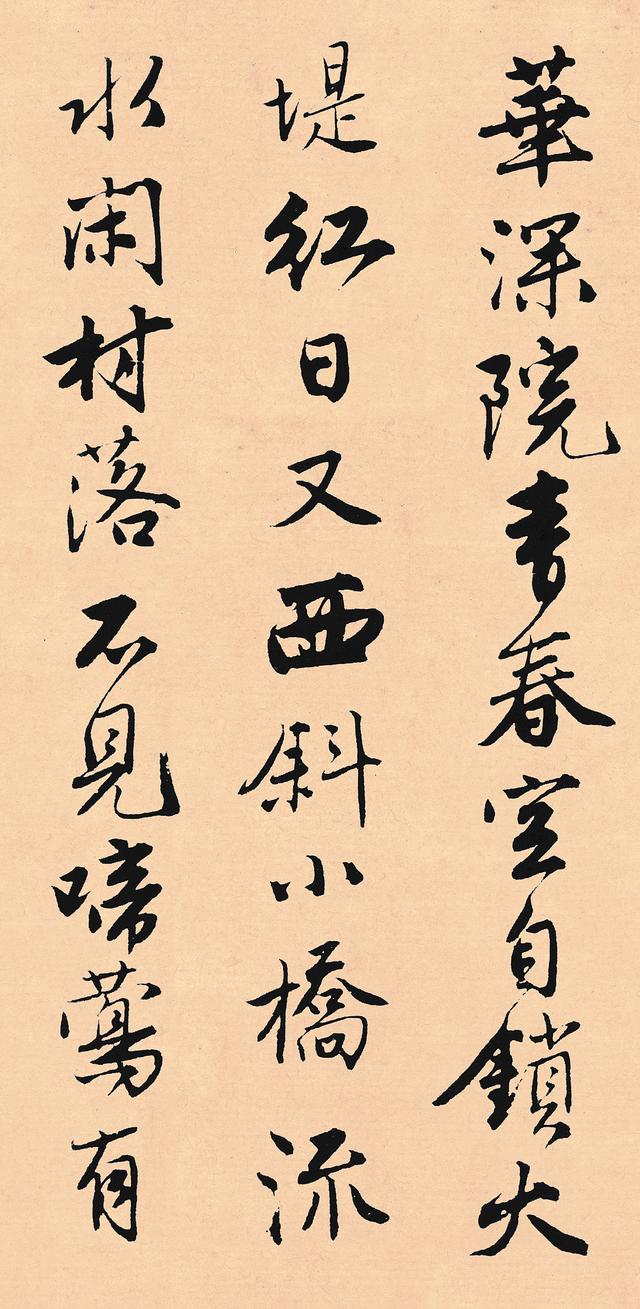 華深院青春空自鎖大
堤紅日又西斜小橋流
水閑村落不見啼鶯有